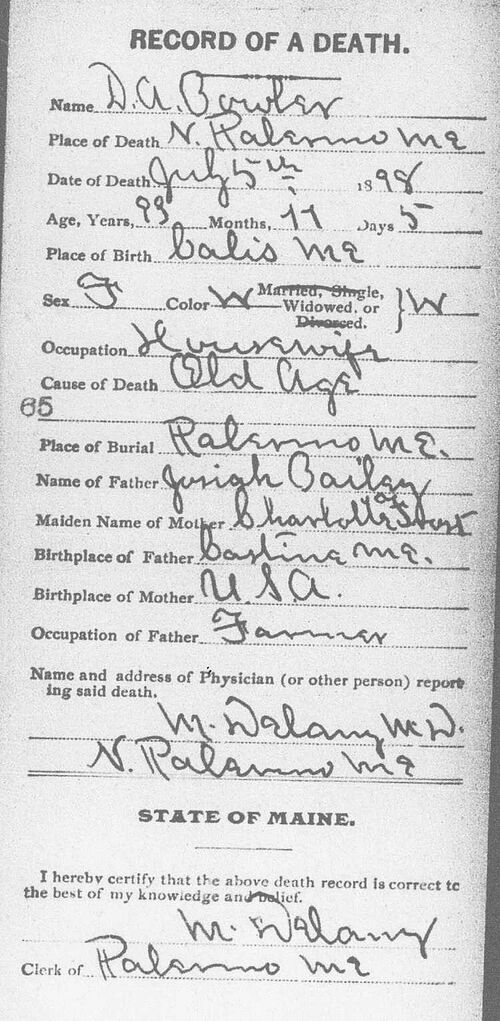 RECORD OF A DEATH.
Name D. A. Bowler
Place of Death N. Palermo Me
Date of Death July 5th 1898
Age, Years, 93 Months, 11 Days 5
Place of Birth Calis Me
Sex F Color W Married, Single, Widowed, or Divorced. } W
Occupation Housewife
Cause of Death Old Age
65
Place of Burial Palermo Me.
Name of Father Josiah Bailey
Maiden Name of Mother Charlotte
Birthplace of Father Castine Me.
Birthplace of Mother U. S. A.
Occupation of Father Farmer
Name and address of Physician (or other person) report
ing said death.
M. Delany M.D.
N. Palermo Me
STATE OF MAINE.
I hereby certify that the above death record is correct to
the best of my knowledge and belief.
M. Delany
Clerk of Palermo Me